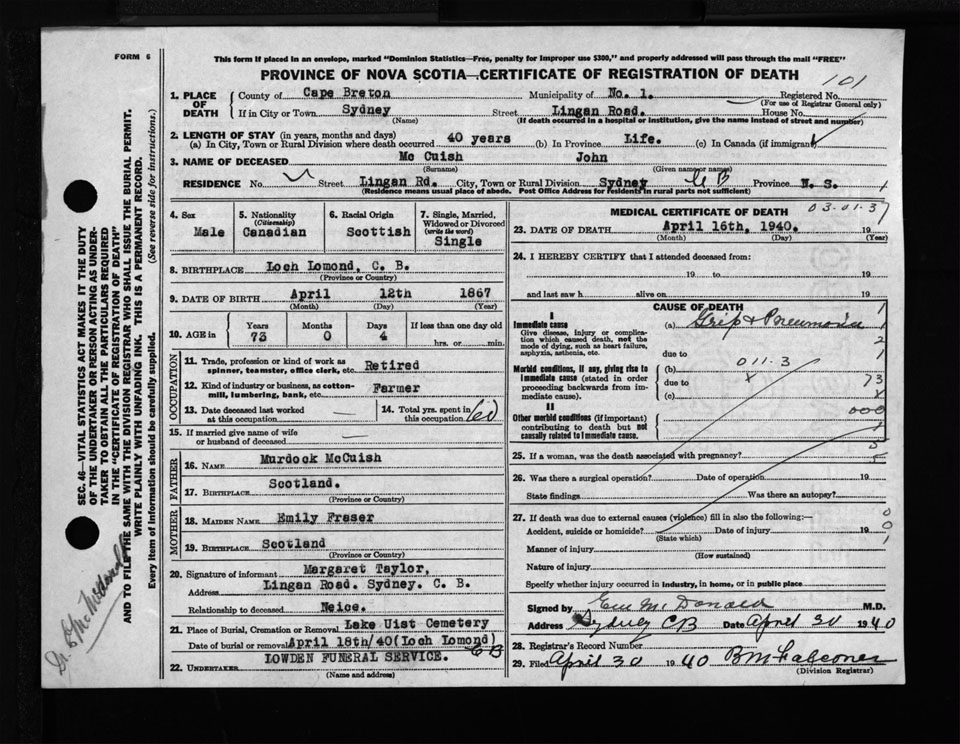 FORM 6
This form if placed in an envelope, marked "Dominion Statistics—Free, penalty for improper use $300," and properly addressed will pass through the mail "FREE"
PROVINCE OF NOVA SCOTIA—CERTIFICATE OF REGISTRATION OF DEATH
101
1. PLACE OF DEATH
County of Cape Breton Municipality of No. 1. Registered No.
(For use of Registrar General only)
If in City or Town Sydney Street Lingan Road. House No.
(Name) (If death occurred in a hospital or institution, give the name instead of street and number)
2. LENGTH OF STAY (in years, months and days)
(a) In City, Town or Rural Division where death occurred 40 years (b) In Province Life. (c) In Canada (if immigrant)
3. NAME OF DECEASED Mc Cuish John
(Surname) (Given name or names)
RESIDENCE No. Street Lingan Rd. City, Town or Rural Division Sydney C B Province N. S.
(Residence means usual place of abode. Post Office Address for residents in rural parts not sufficient)
4. Sex
Male
5. Nationality
(Citizenship)
Canadian
6. Racial Origin
Scottish
7. Single, Married, Widowed or Divorced
(write the word)
Single
8. BIRTHPLACE Loch Lomond, C. B.
(Province or Country)
9. DATE OF BIRTH April 12th 1867
(Month) (Day) (Year)
10. AGE in Years Months Days If less than one day old
73 0 4 hrs. or min.
OCCUPATION
11. Trade, profession or kind of work as spinner, teamster, office clerk, etc. Retired
12. Kind of industry or business, as cotton-mill, lumbering, bank, etc. Farmer
13. Date deceased last worked at this occupation —
14. Total yrs. spent in this occupation
15. If married give name of wife or husband of deceased —
FATHER
16. NAME Murdock McCuish
17. BIRTHPLACE Scotland.
(Province or Country)
MOTHER
18. MAIDEN NAME Emily Fraser
19. BIRTHPLACE Scotland
(Province or Country)
20. Signature of informant Margaret Taylor,
Address Lingan Road. Sydney. C. B.
Relationship to deceased Neice.
21. Place of Burial, Cremation or Removal Lake Uist Cemetery
Date of burial or removal April 18th/40 (Loch Lomond) C B
22. UNDERTAKER LOWDEN FUNERAL SERVICE.
(Name and address)
MEDICAL CERTIFICATE OF DEATH 03-01-37
23. DATE OF DEATH April 16th, 1940. 19
(Month) (Day) (Year)
24. I HEREBY CERTIFY that I attended deceased from:
19 to 19
and last saw h alive on 19
CAUSE OF DEATH
I
Immediate cause
Give disease, injury or complication which caused death, not the mode of dying, such as heart failure, asphyxia, asthenia, etc.
(a) Grip & Pneumonia
due to
Morbid conditions, if any, giving rise to immediate cause (stated in order proceeding backwards from immediate cause).
(b) 011-3
due to
(c)
II
Other morbid conditions (if important) contributing to death but not causally related to immediate cause.
1
2
1
73
x
000
25. If a woman, was the death associated with pregnancy?
26. Was there a surgical operation? Date of operation 19
State findings Was there an autopsy?
27. If death was due to external causes (violence) fill in also the following:—
Accident, suicide or homicide? Date of injury 19
(State which)
Manner of injury
(How sustained)
Nature of injury
Specify whether injury occurred in industry, in home, or in public place
0
0
1
Signed by McDonald M.D.
Address Sydney CB Date April 30 1940
28. Registrar's Record Number
29. Filed April 30 1940 B M Falconer
(Division Registrar)
SEC. 46—VITAL STATISTICS ACT MAKES IT THE DUTY
OF THE UNDERTAKER OR PERSON ACTING AS UNDER-
TAKER TO OBTAIN ALL THE PARTICULARS REQUIRED
IN THE "CERTIFICATE OF REGISTRATION OF DEATH"
AND TO FILE THE SAME WITH THE DIVISION REGISTRAR WHO SHALL ISSUE THE BURIAL PERMIT.
WRITE PLAINLY WITH UNFADING INK. THIS IS A PERMANENT RECORD.
Every item of information should be carefully supplied. (See reverse side for instructions.)